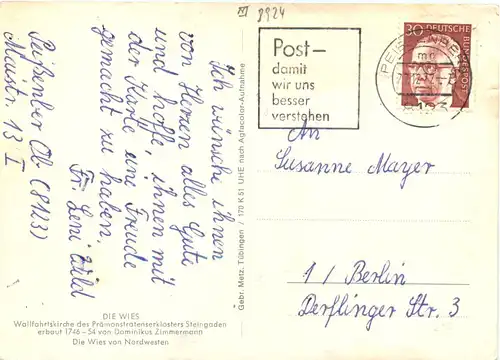 XI 8924
Post-
damit
wir uns
besser
verstehen
30 DEUTSCHE BUNDESPOST
PEISSENBERG
Ich wünsche ihnen
von Herzen alles Gute
und hoffe, ihnen mit
der Karte eine Freude
gemacht zu haben.
Frl. Leni Wild
Peißenberg Ob (8123)
Maistr. 13 I
An
Susanne Mayer
1 / Berlin
Derflinger Str. 3
Gebr. Metz, Tübingen / 170 K 51 UHE nach Agfacolor-Aufnahme
DIE WIES
Wallfahrtskirche des Prämonstratenserklosters Steingaden
erbaut 1746 - 54 von Dominikus Zimmermann
Die Wies von Nordwesten